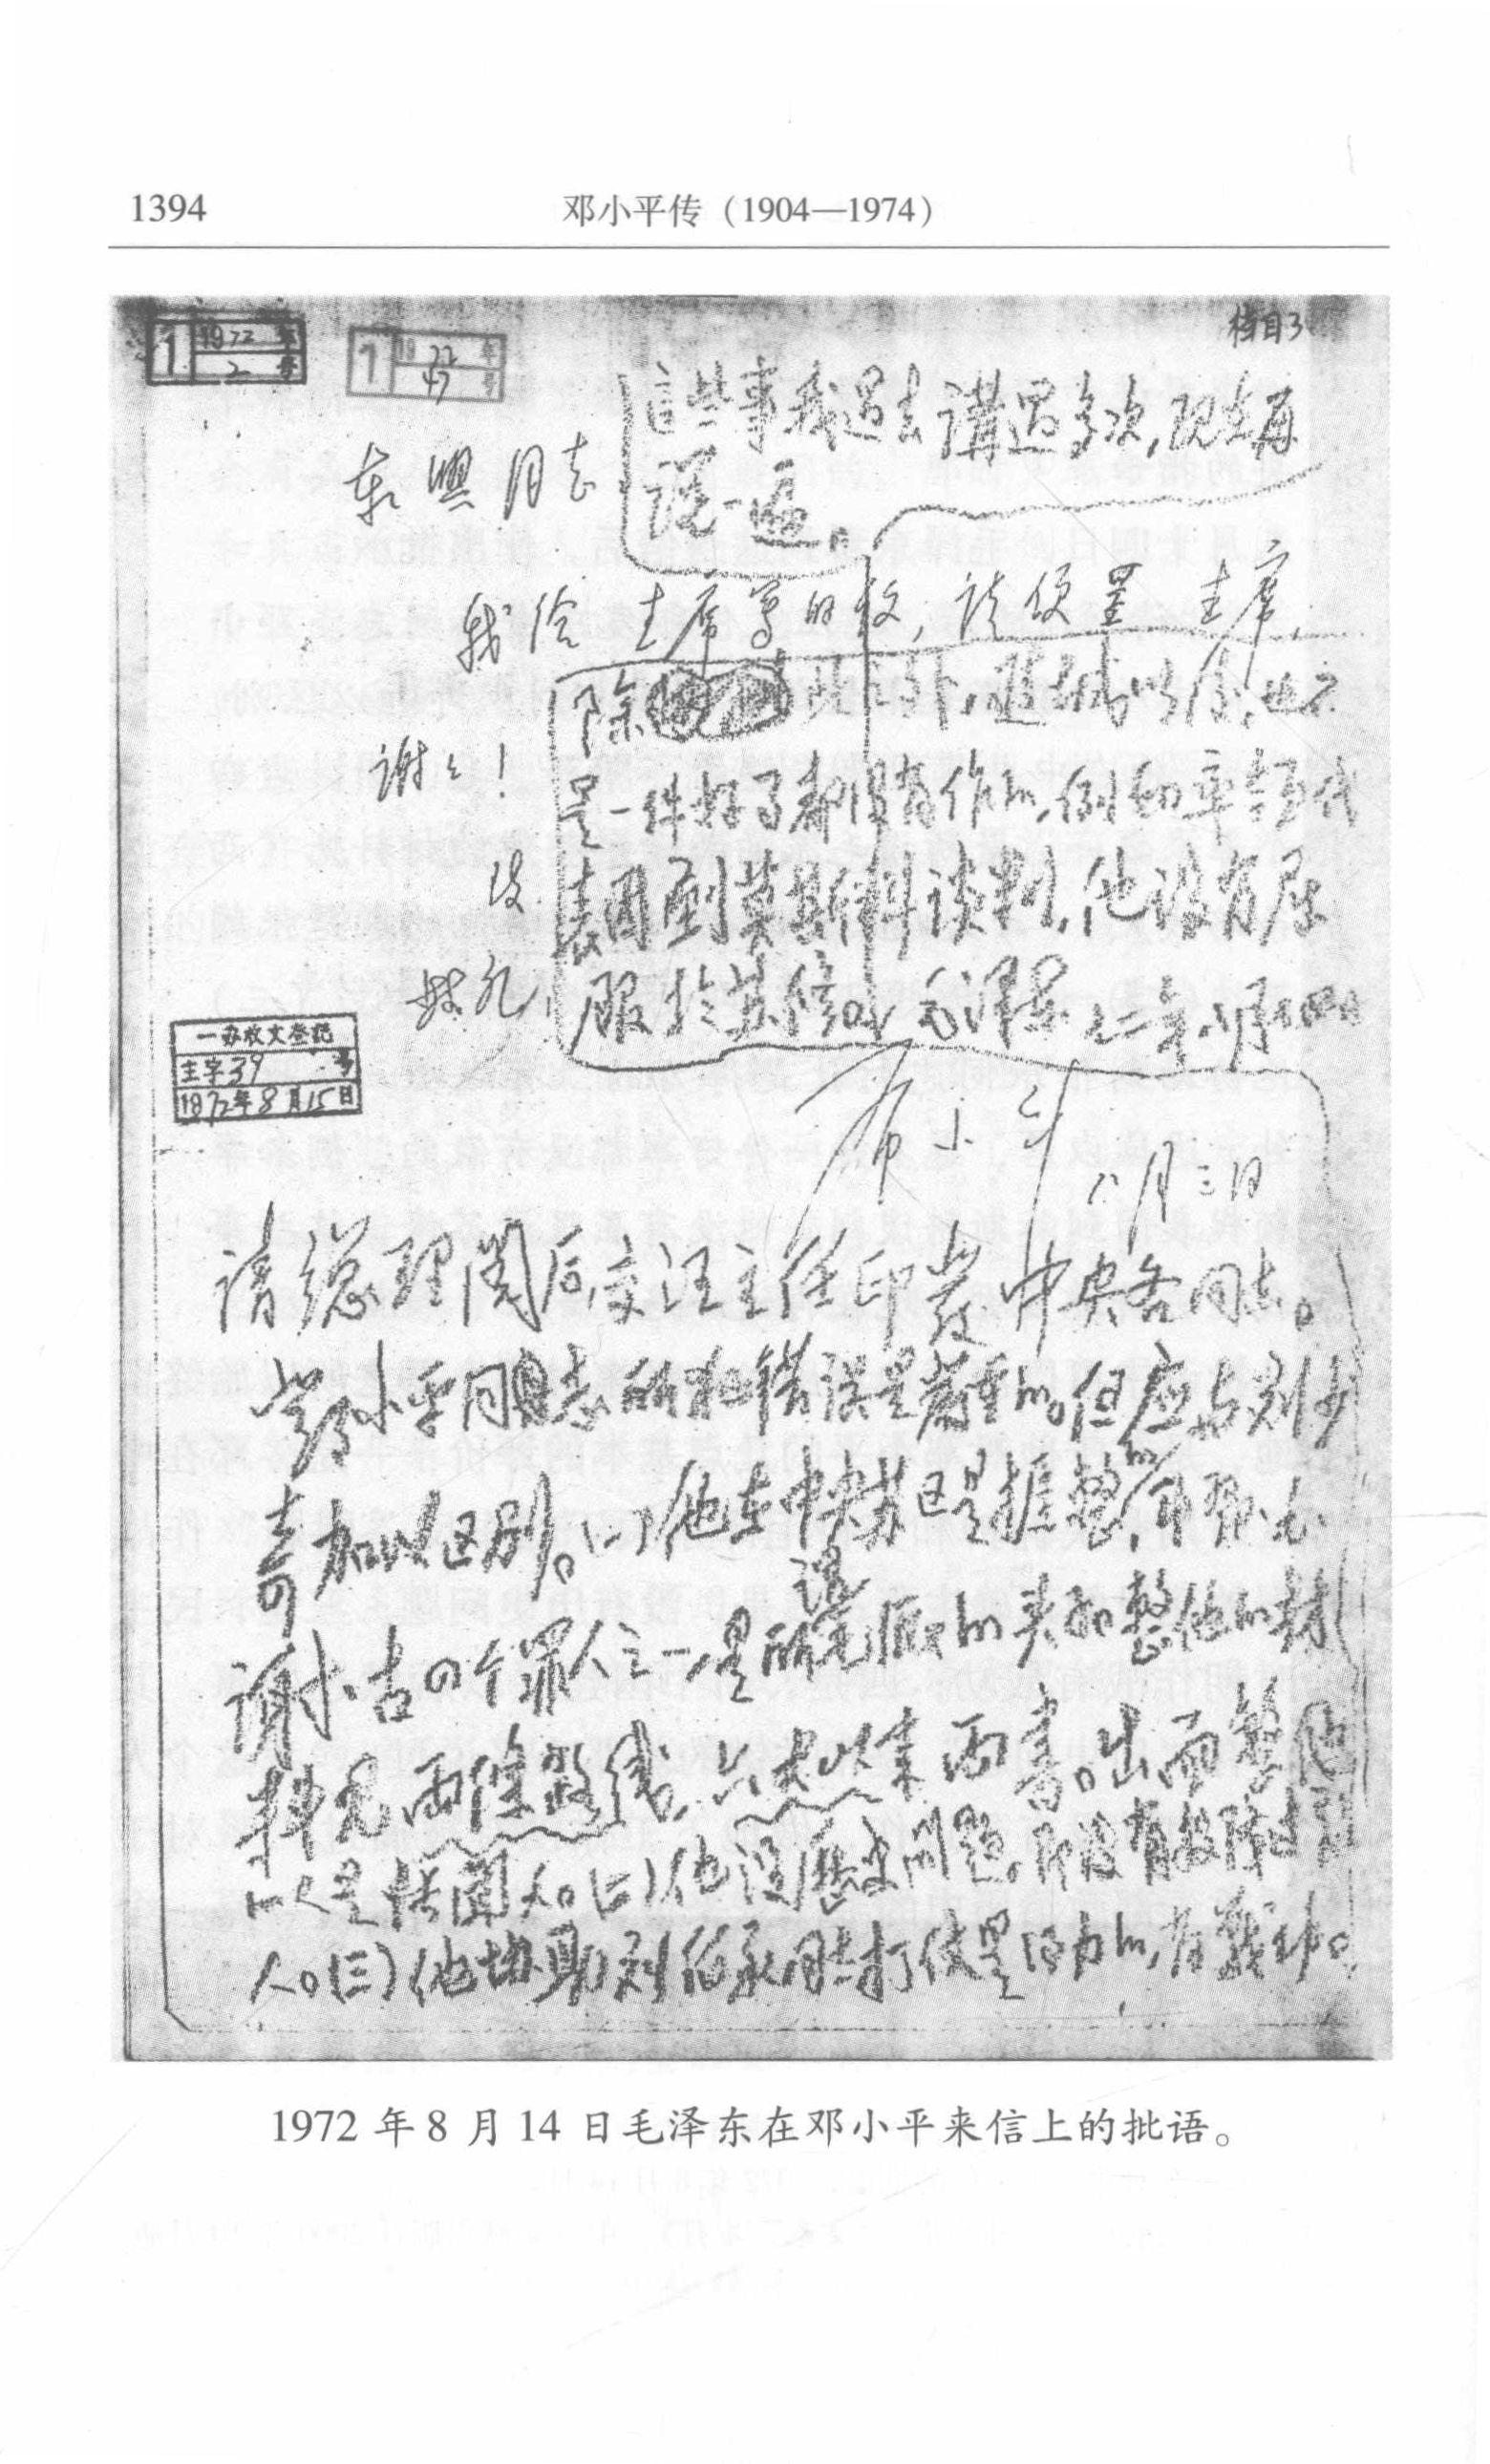 1394
邓小平传（1904—1974）
1 1972年
2号
1 1972年
47号
档目3
這些事我过去講过多次，现在再
说一遍。
东興同志
我给 主席写的信，请便呈 主席，
谢谢！
除此之外，进城以后，也不
是一件好事都没有作的，例如率领代
表团到莫斯科谈判，他没有屈
服于苏修。毛泽东 七二年八月十四日
致
敬礼
一办收文登记
主字39号
1972年8月15日
邓小平
八月三日
请总理阅后，交汪主任印发中央各同志。
邓小平同志所犯错误是严重的。但应与刘少
奇加以区别。（一）他在中央苏区是挨整的，即邓、毛、
谢、古四个罪人之一，是所谓毛派的头子。整他的材
料见两条路线，六大以来两书。出面整他
的人是张闻天。（二）他没历史问题。即没有投降过敌
人。（三）他协助刘伯承同志打仗是得力的，有战功。
1972年8月14日毛泽东在邓小平来信上的批语。